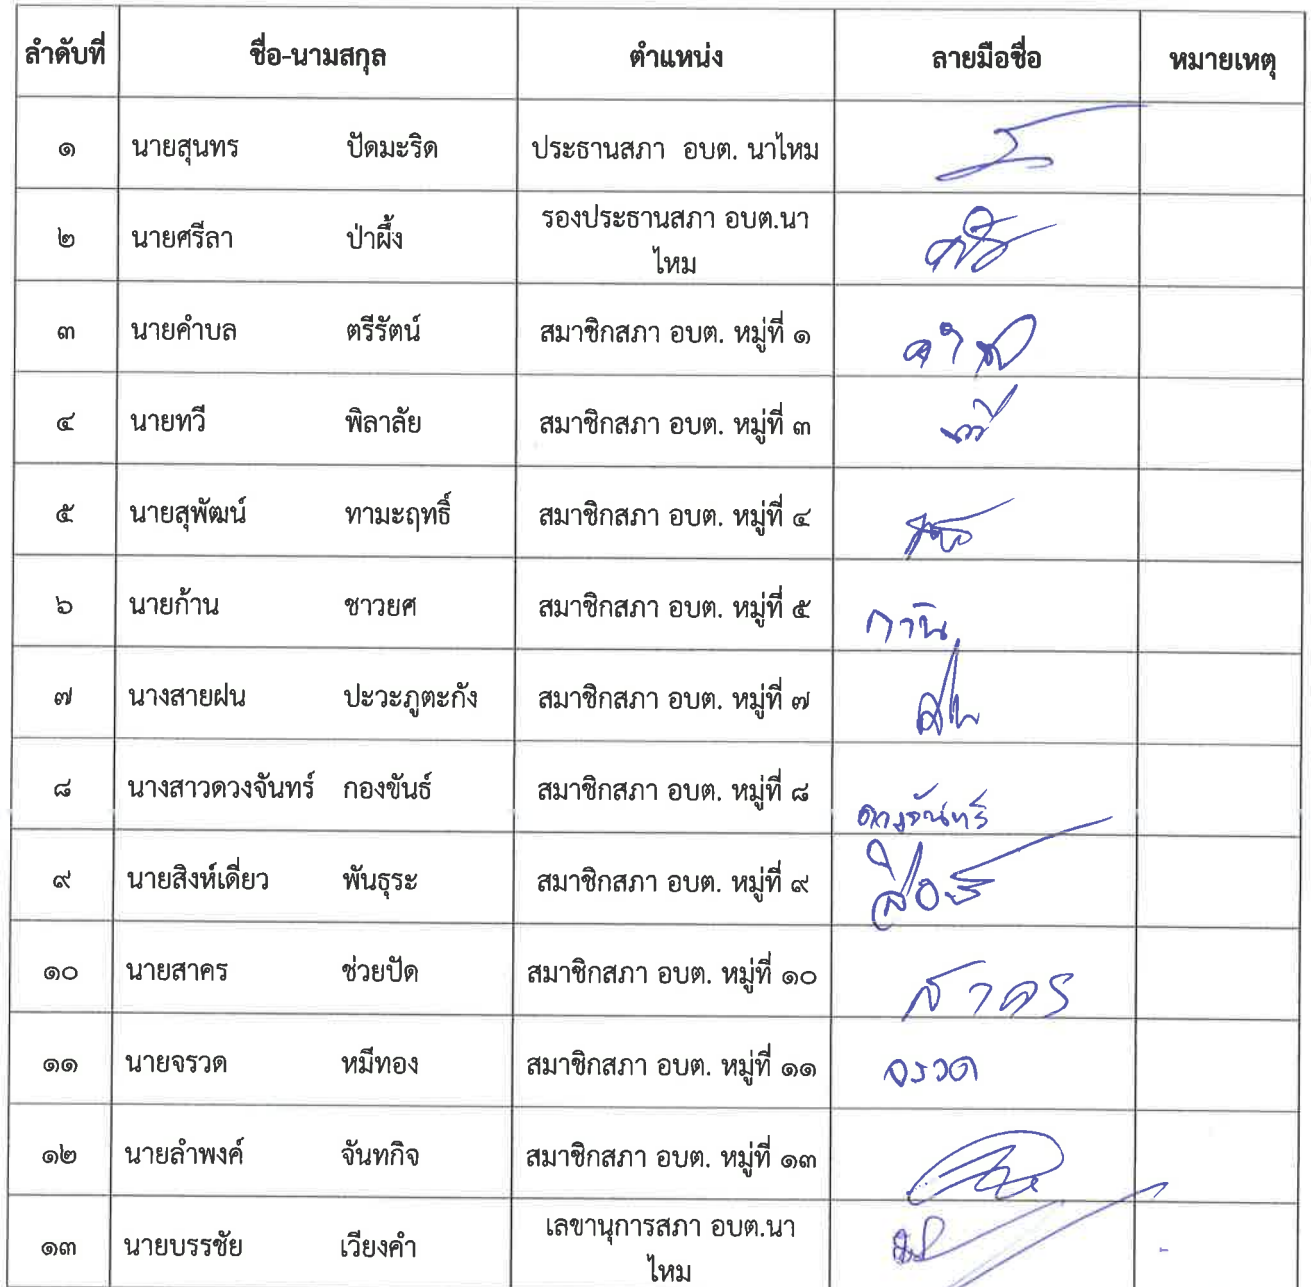 ลำดับที่ ชื่อ-นามสกุล ตำแหน่ง ลายมือชื่อ หมายเหตุ
๑ นายสุนทร ปัดมะริด ประธานสภา อบต. นาไหม
๒ นายศรีลา ป่าผึ้ง รองประธานสภา อบต.นา
ไหม
๓ นายคำบล ตรีรัตน์ สมาชิกสภา อบต. หมู่ที่ ๑
๔ นายทวี พิลาลัย สมาชิกสภา อบต. หมู่ที่ ๓
๕ นายสุพัฒน์ ทามะฤทธิ์ สมาชิกสภา อบต. หมู่ที่ ๔
๖ นายก้าน ชาวยศ สมาชิกสภา อบต. หมู่ที่ ๕ ก้าน
๗ นางสายฝน ปะวะภูตะกัง สมาชิกสภา อบต. หมู่ที่ ๗
๘ นางสาวดวงจันทร์ กองขันธ์ สมาชิกสภา อบต. หมู่ที่ ๘ ดวงจันทร์
๙ นายสิงห์เดี่ยว พันธุระ สมาชิกสภา อบต. หมู่ที่ ๙
๑๐ นายสาคร ช่วยปัด สมาชิกสภา อบต. หมู่ที่ ๑๐ สาคร
๑๑ นายจรวด หมีทอง สมาชิกสภา อบต. หมู่ที่ ๑๑ จรวด
๑๒ นายลำพงค์ จันทกิจ สมาชิกสภา อบต. หมู่ที่ ๑๓
๑๓ นายบรรชัย เวียงคำ เลขานุการสภา อบต.นา
ไหม